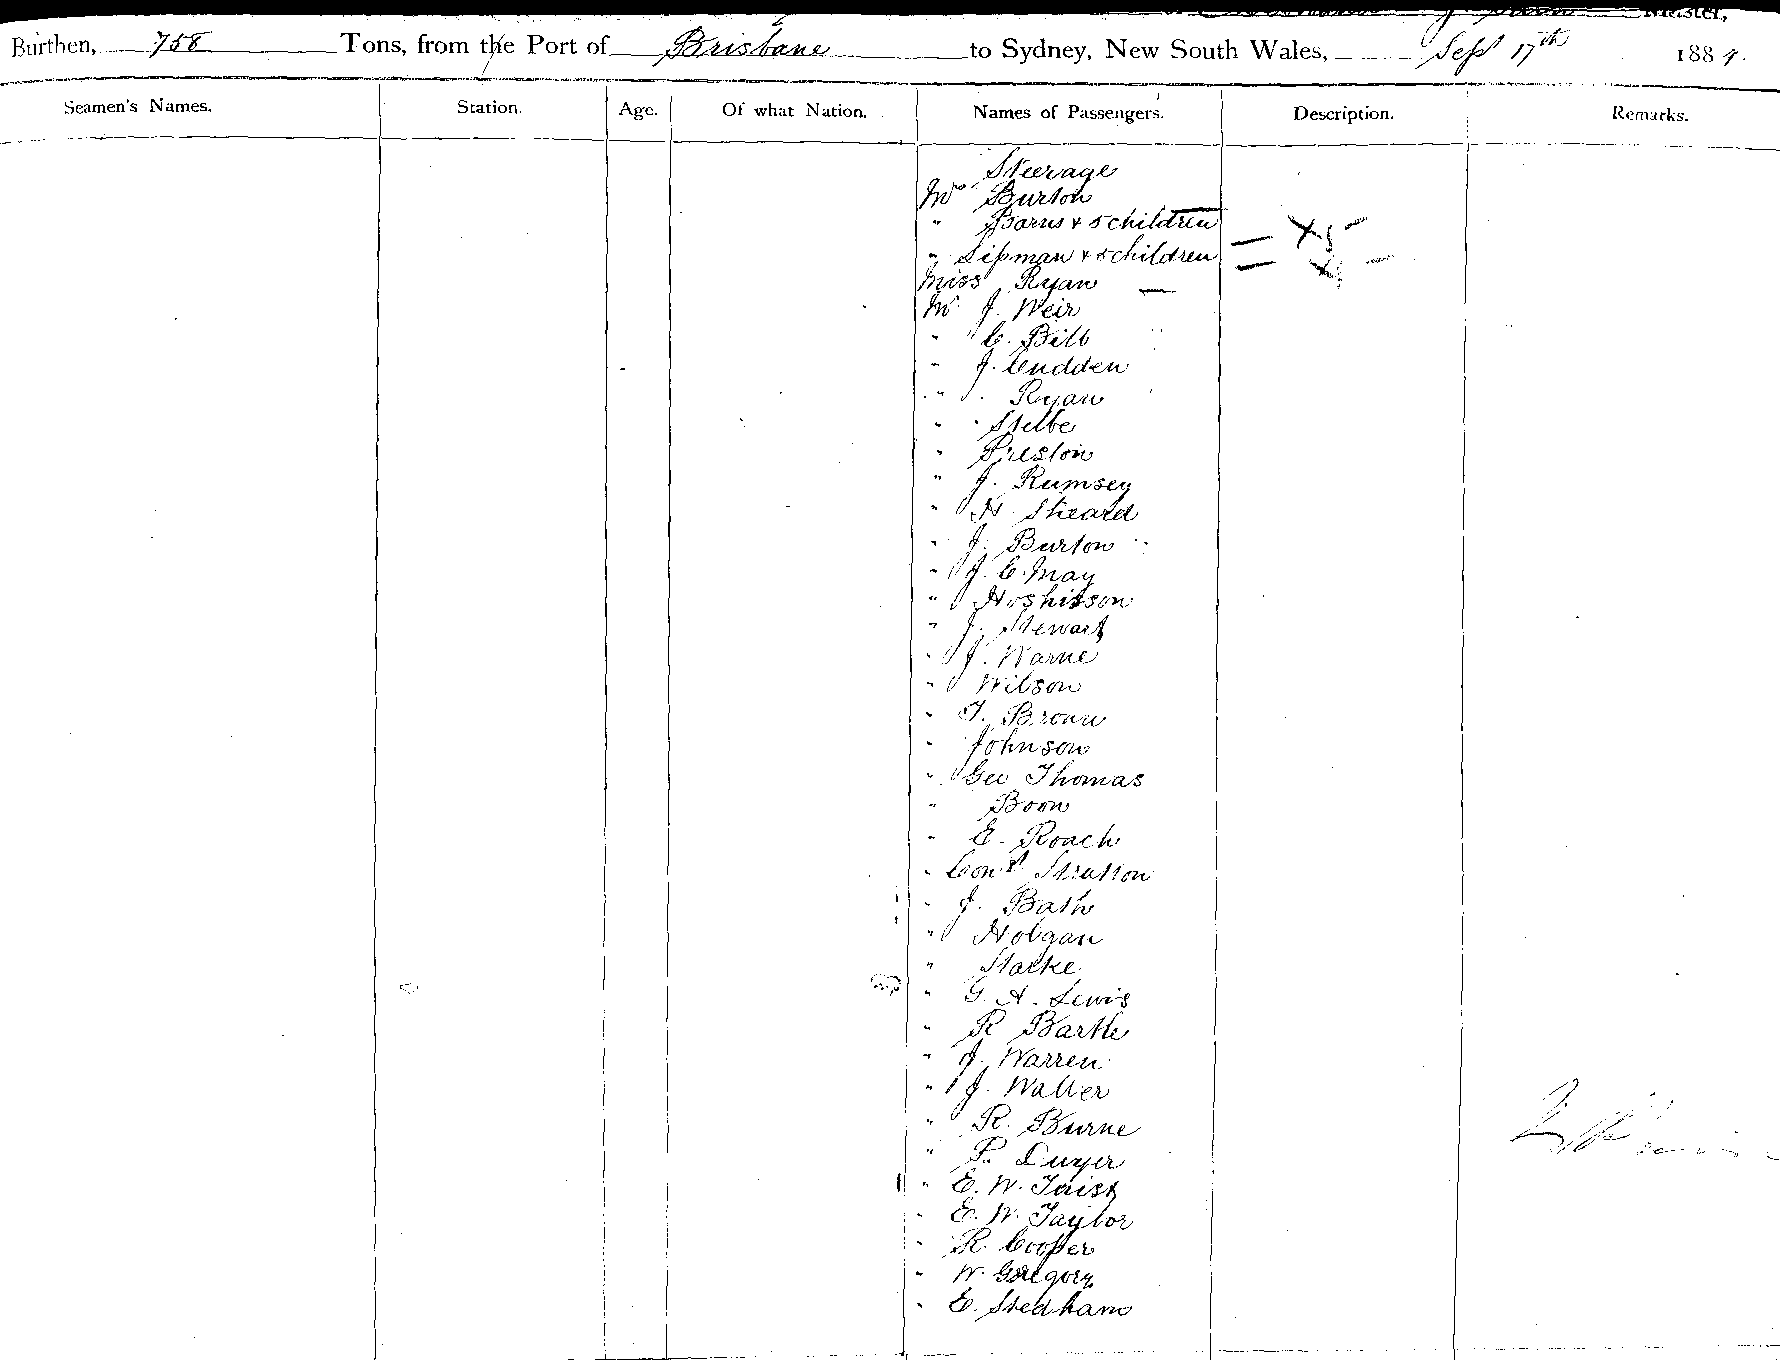 Master,
Burthen, 758 Tons, from the Port of Brisbane to Sydney, New South Wales, Sept 17th 1884.
Seamen's Names. Station. Age. Of what Nation. Names of Passengers. Description. Remarks.
Steerage
Mrs Burton
" Barns & 5 children = x5 -
" Lipman & 5 children = x -
Miss Ryan -
Mr J. Weir
" C. Bill
" J. Cudden
" Ryan
" Stelbe
" Preston
" J. Rumsey
" H. Sheard
" J. Burton
" J. C. May
" Hoskisson
" J. Stewart
" J. Warne
" Wilson
" T. Brown
" Johnson
" Geo Thomas
" Boon
" E. Roach
" Const Stratton
" J. Bath
" Holgan
" Starke
" G. A. Lewis
" R Barthe
" J. Warren
" J. Walter
" R. Burne
" P. Dwyer
" E. W. Taist
" E. W. Taylor
" R. Cooper
" W. Gregory
" E. Stedham